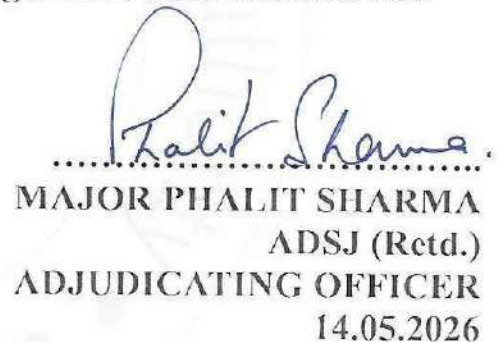 Phalit Sharma.
MAJOR PHALIT SHARMA
ADSJ (Retd.)
ADJUDICATING OFFICER
14.05.2026